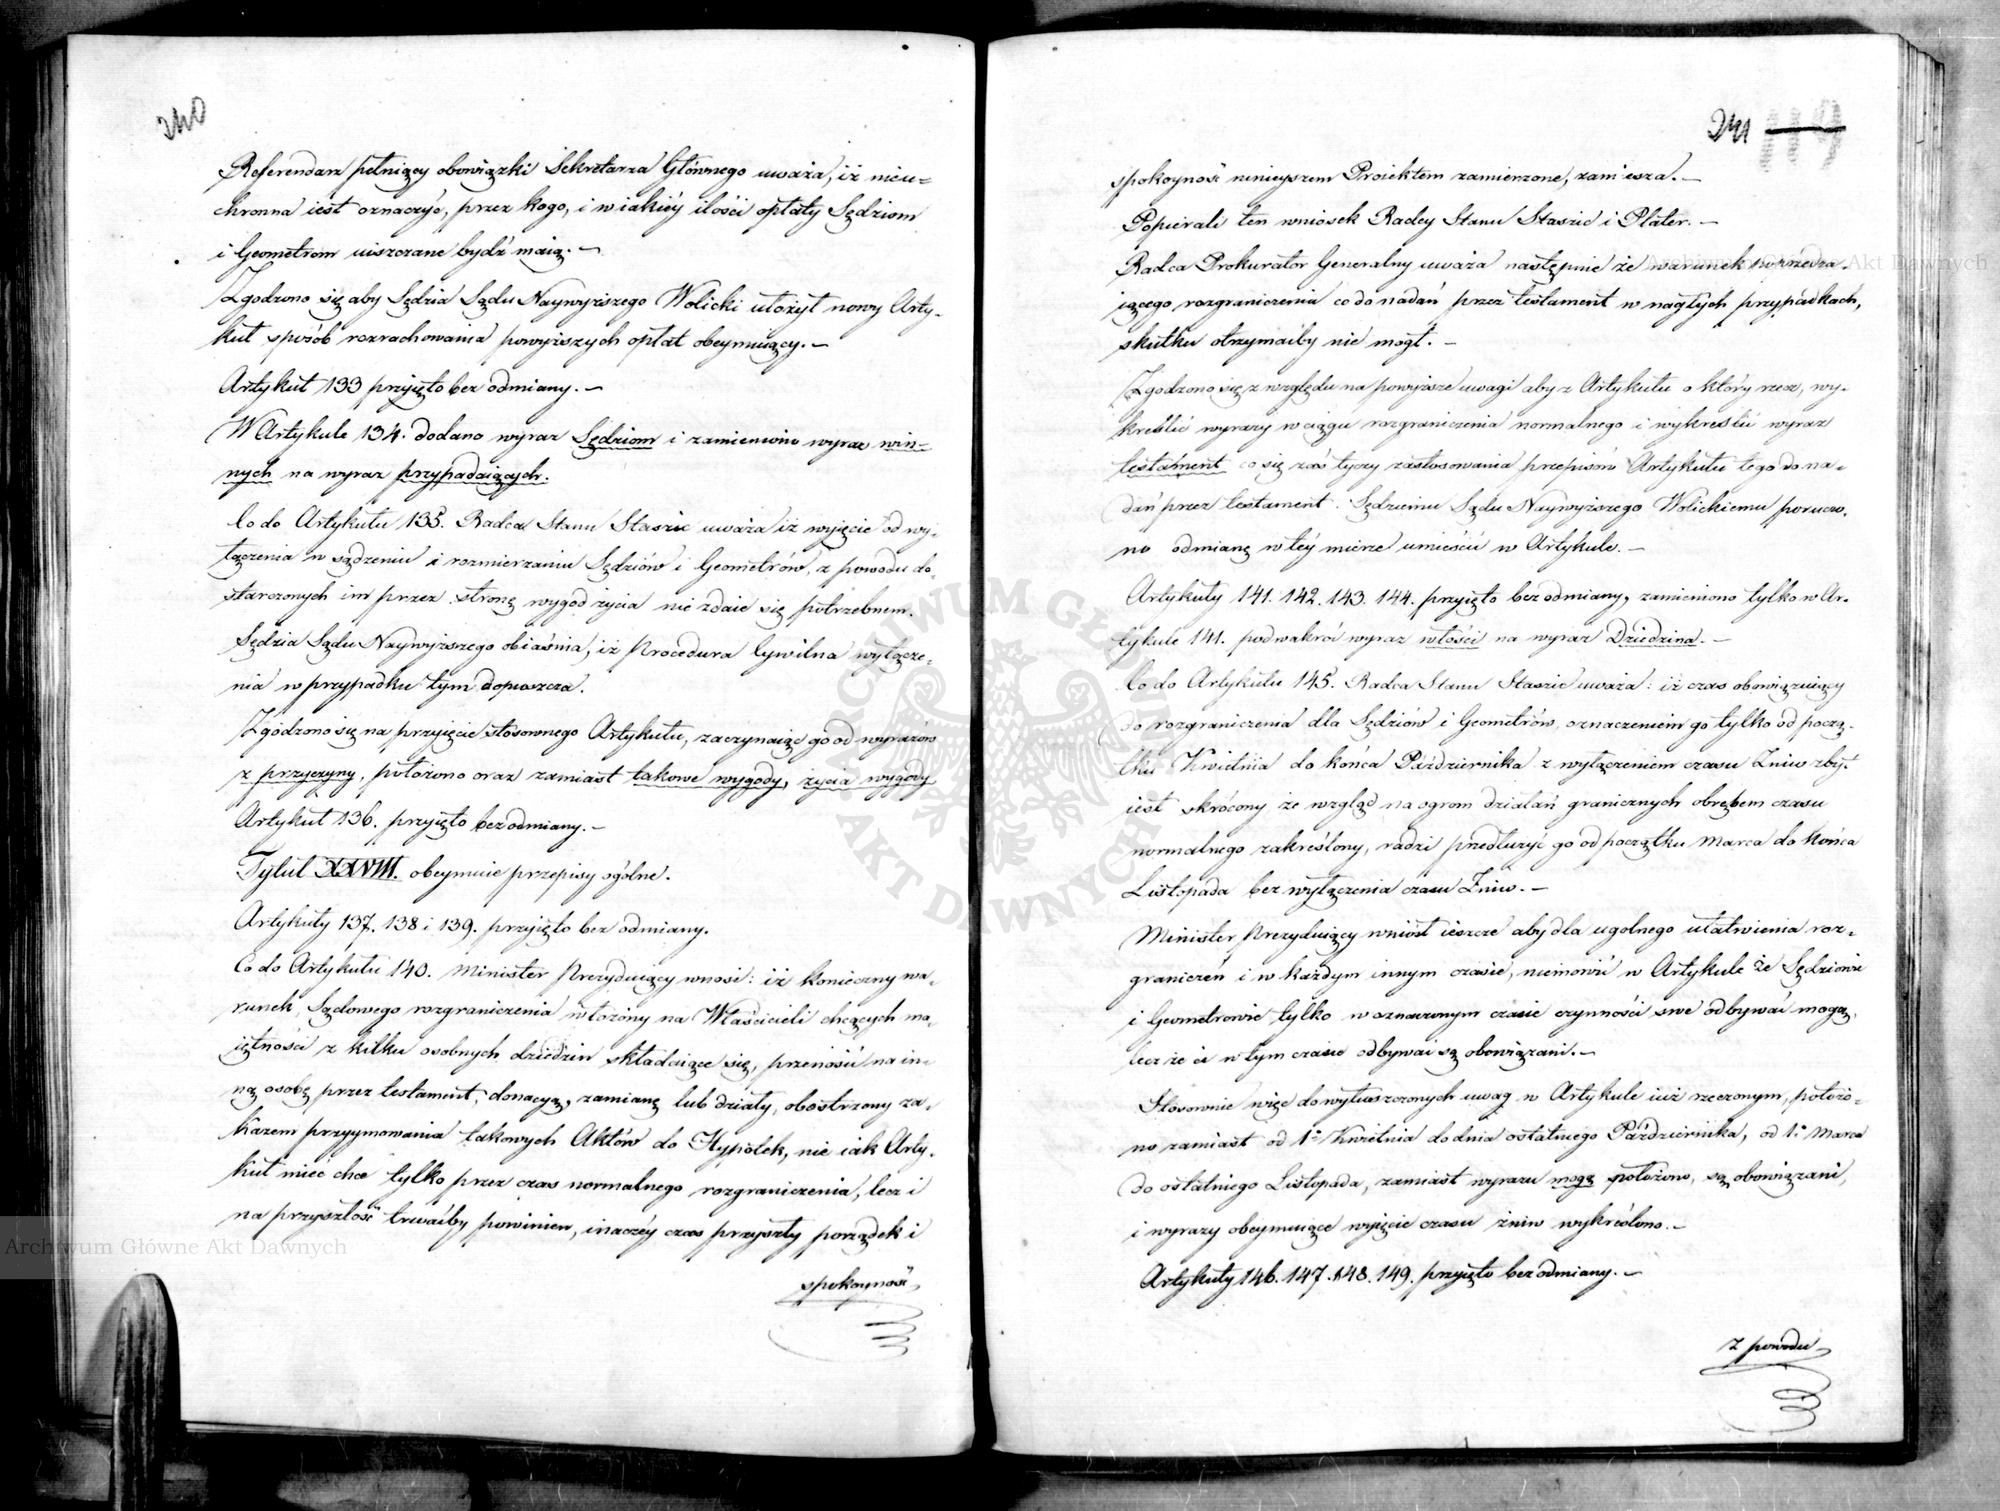 240
Referendarz pełniący obowiązki Sekretarza Głównego uważa, iż nieu-
chronna iest oznaczyć, przez kogo, i w iakiéy ilości opłaty Sędziom
i Geometrom uiszczane bydź maią. —
Zgodzono się aby Sędzia Sądu Naywyższego Wolicki ułożył nowy Arty-
kuł sposób rozrachowania powyższych opłat obeymuiący. —
Artykuł 133 przyięto bez odmiany. —
W Artykule 134. dodano wyraz Sędziom i zamieniono wyraz win-
nych na wyraz przypadaiących.
Co do Artykułu 135. Radca Stanu Staszic uważa iż wyięcie od wy-
łączenia w sądzeniu i rozmierzaniu Sędziów i Geometrów, z powodu do-
starczonych im przez stronę wygód życia nie zdaie się potrzebnem.
Sędzia Sądu Naywyższego obiaśnia, iż Procedura Cywilna wyłącze-
nia w przypadku tym dopuszcza.
Zgodzono się na przyięcie stosownego Artykułu, zaczynaiąc go od wyrazów
z przyczyny, położono oraz zamiast takowe wygody, życia wygody
Artykuł 136. przyięto bez odmiany. —
Tytuł XXVIII. obeymuie przepisy ogólne.
Artykuły 137. 138 i 139. przyięto bez odmiany.
Co do Artykułu 140. Minister Prezyduiący wnosi: iż konieczny wa-
runek, Sądowego rozgraniczenia włożony na Właścicieli chcących ma-
iętności z kilku osobnych dziedzin składaiące się, przenosić na in-
ną osobę przez testament, donacyą, zamianę lub działy, obostrzony za-
kazem przyymowania takowych Aktów do Hypotek, nie iak Arty-
kuł mieć chce tylko przez czas normalnego rozgraniczenia, lecz i
na przyszłość trwaćby powinien, inaczéy czas przyszły porządek i
spokoyność
241 119
spokoyność ninieyszem Proiektem zamierzone, zamiesza. —
Popierali ten wniosek Radcy Stanu Staszic i Plater. —
Radca Prokurator Generalny uważa następnie że warunek poprzedza-
iącego rozgraniczenia co do nadań przez testament w nagłych przypadkach,
skutku otrzymaćby nie mógł. —
Zgodzono się z względu na powyższe uwagi aby z Artykułu o który rzecz, wy-
kreślić wyrazy w ciągu rozgraniczenia normalnego i wykreślić wyraz
testament co się zaś tyczy zastosowania przepisów Artykułu tego do na-
dań przez testament. Sędziemu Sądu Naywyższego Wolickiemu poruczo-
no odmianę w téy mierze umieścić w Artykule. —
Artykuły 141. 142. 143. 144. przyięto bez odmiany, zamieniono tylko w Ar-
tykule 141. podwakroć wyraz włości na wyraz Dziedzina. —
Co do Artykułu 145. Radca Stanu Staszic uważa: iż czas obowiązuiący
do rozgraniczenia dla Sędziów i Geometrów, oznaczeniem go tylko od począ-
tku Kwietnia do końca Października z wyłączeniem czasu Żniw zbyt
iest skrócony, że wzgląd na ogrom działań granicznych obrębem czasu
normalnego zakreślony, radzi przedłużyć go od początku Marca do końca
Listopada bez wyłączenia czasu Żniw. —
Minister Prezyduiący wniósł ieszcze aby dla ogólnego ułatwienia roz-
graniczeń i w każdym innym czasie, niemówić w Artykule że Sędziowie
i Geometrowie tylko w oznaczonym czasie czynności swe odbywać mogą,
lecz że ci w tym czasie odbywać są obowiązani. —
Stosownie więc do wyłuszczonych uwag w Artykule iuż rzeczonym, położo-
no zamiast od 1o Kwietnia do dnia ostatniego Października, od 1o Marca
do ostatniego Listopada, zamiast wyrazu mogą położono, są obowiązani,
i wyrazy obeymuiące wyięcie czasu żniw wykreślono. —
Artykuły 146. 147. 148. 149. przyięto bez odmiany. —
z powodu
Archiwum Główne Akt Dawnych
Archiwum Główne Akt Dawnych
ARCHIWUM GŁÓWNE AKT DAWNYCH